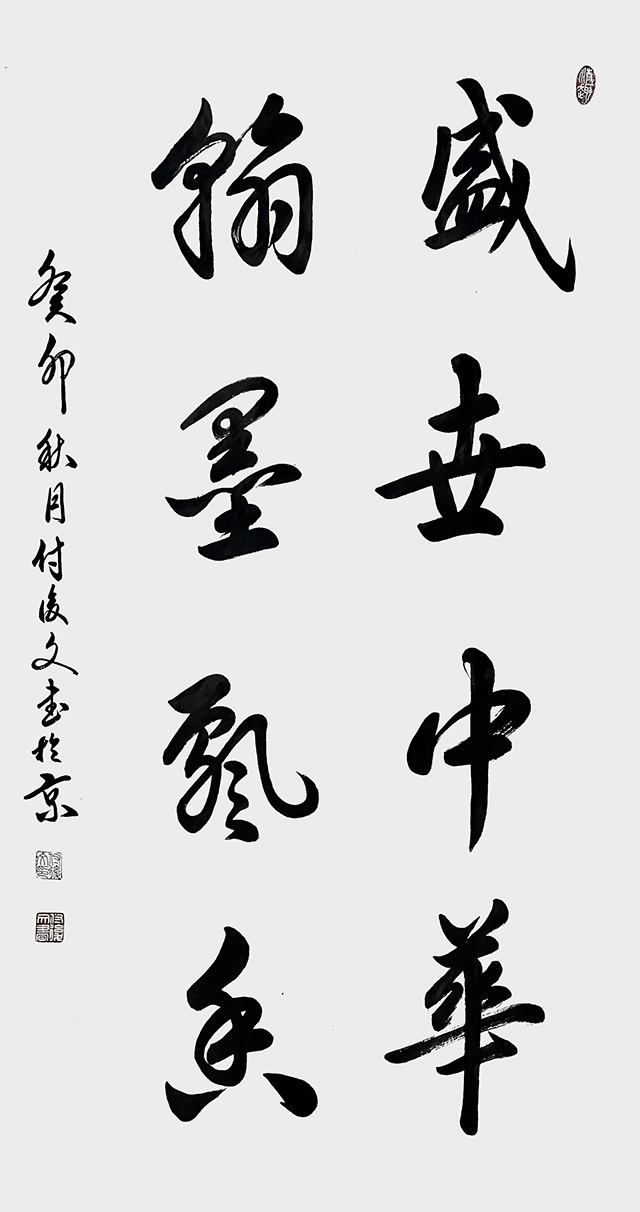 盛世中華
翰墨飘香
癸卯秋月付俊文书於京